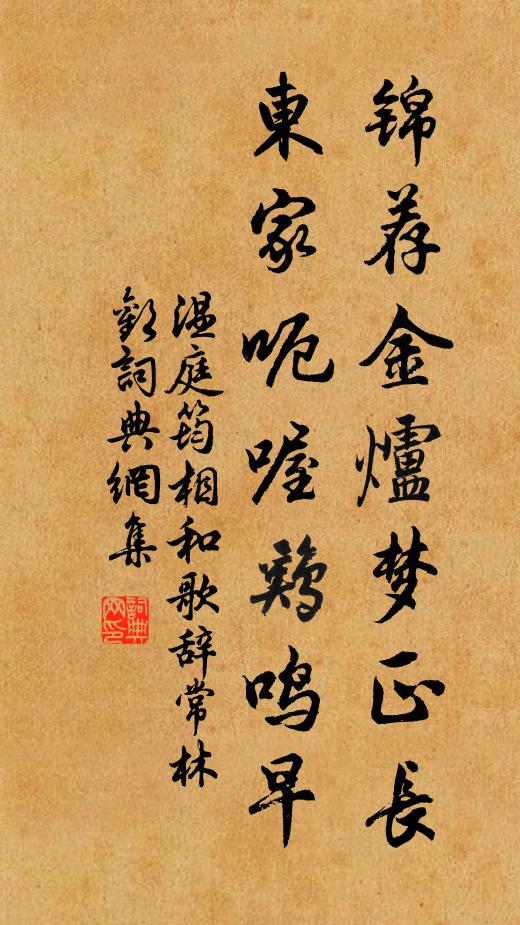 锦荐金爐梦正長
東家呃喔鷄鳴早
温庭筠相和歌辞常林
歡詞典網集
詞典網印